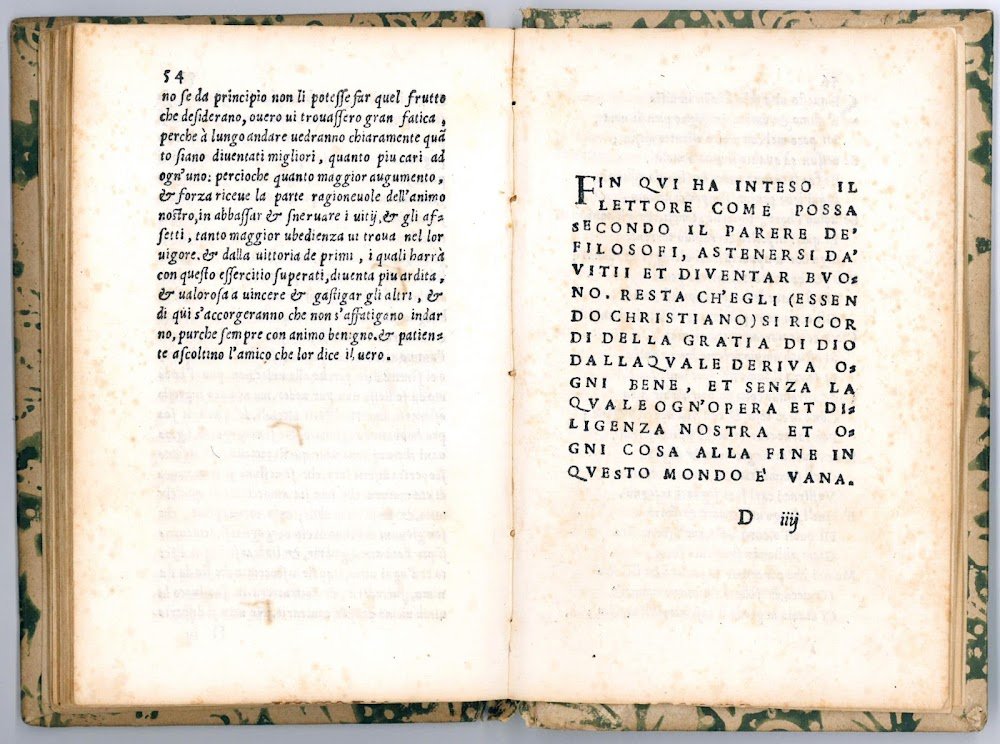 54
no se da principio non li potesse far quel frutto
che desiderano, ouero ui trouassero gran fatica,
perche à lungo andare uedranno chiaramente quã
to siano diuentati migliori, quanto piu cari ad
ogn'uno: percioche quanto maggior augumento,
& forza riceue la parte ragioneuole dell'animo
nostro, in abbassar & sneruare i uitij, & gli af=
fetti, tanto maggior ubedienza ui troua nel lor
uigore. & dalla uittoria de primi, i quali harrà
con questo essercitio superati, diuenta piu ardita,
& ualorosa a uincere & gastigar gli altri, &
di qui s'accorgeranno che non s'affatigano indar
no, purche sempre con animo benigno. & patien=
te ascoltino l'amico che lor dice il uero.
FIN QVI HA INTESO IL
LETTORE COME POSSA
SECONDO IL PARERE DE'
FILOSOFI, ASTENERSI DA'
VITII ET DIVENTAR BVO=
NO. RESTA CH'EGLI (ESSEN
DO CHRISTIANO) SI RICOR
DI DELLA GRATIA DI DIO
DALLAQVALE DERIVA O=
GNI BENE, ET SENZA LA
QVALE OGN'OPERA ET DI=
LIGENZA NOSTRA ET O=
GNI COSA ALLA FINE IN
QVESTO MONDO E' VANA.
D iiij